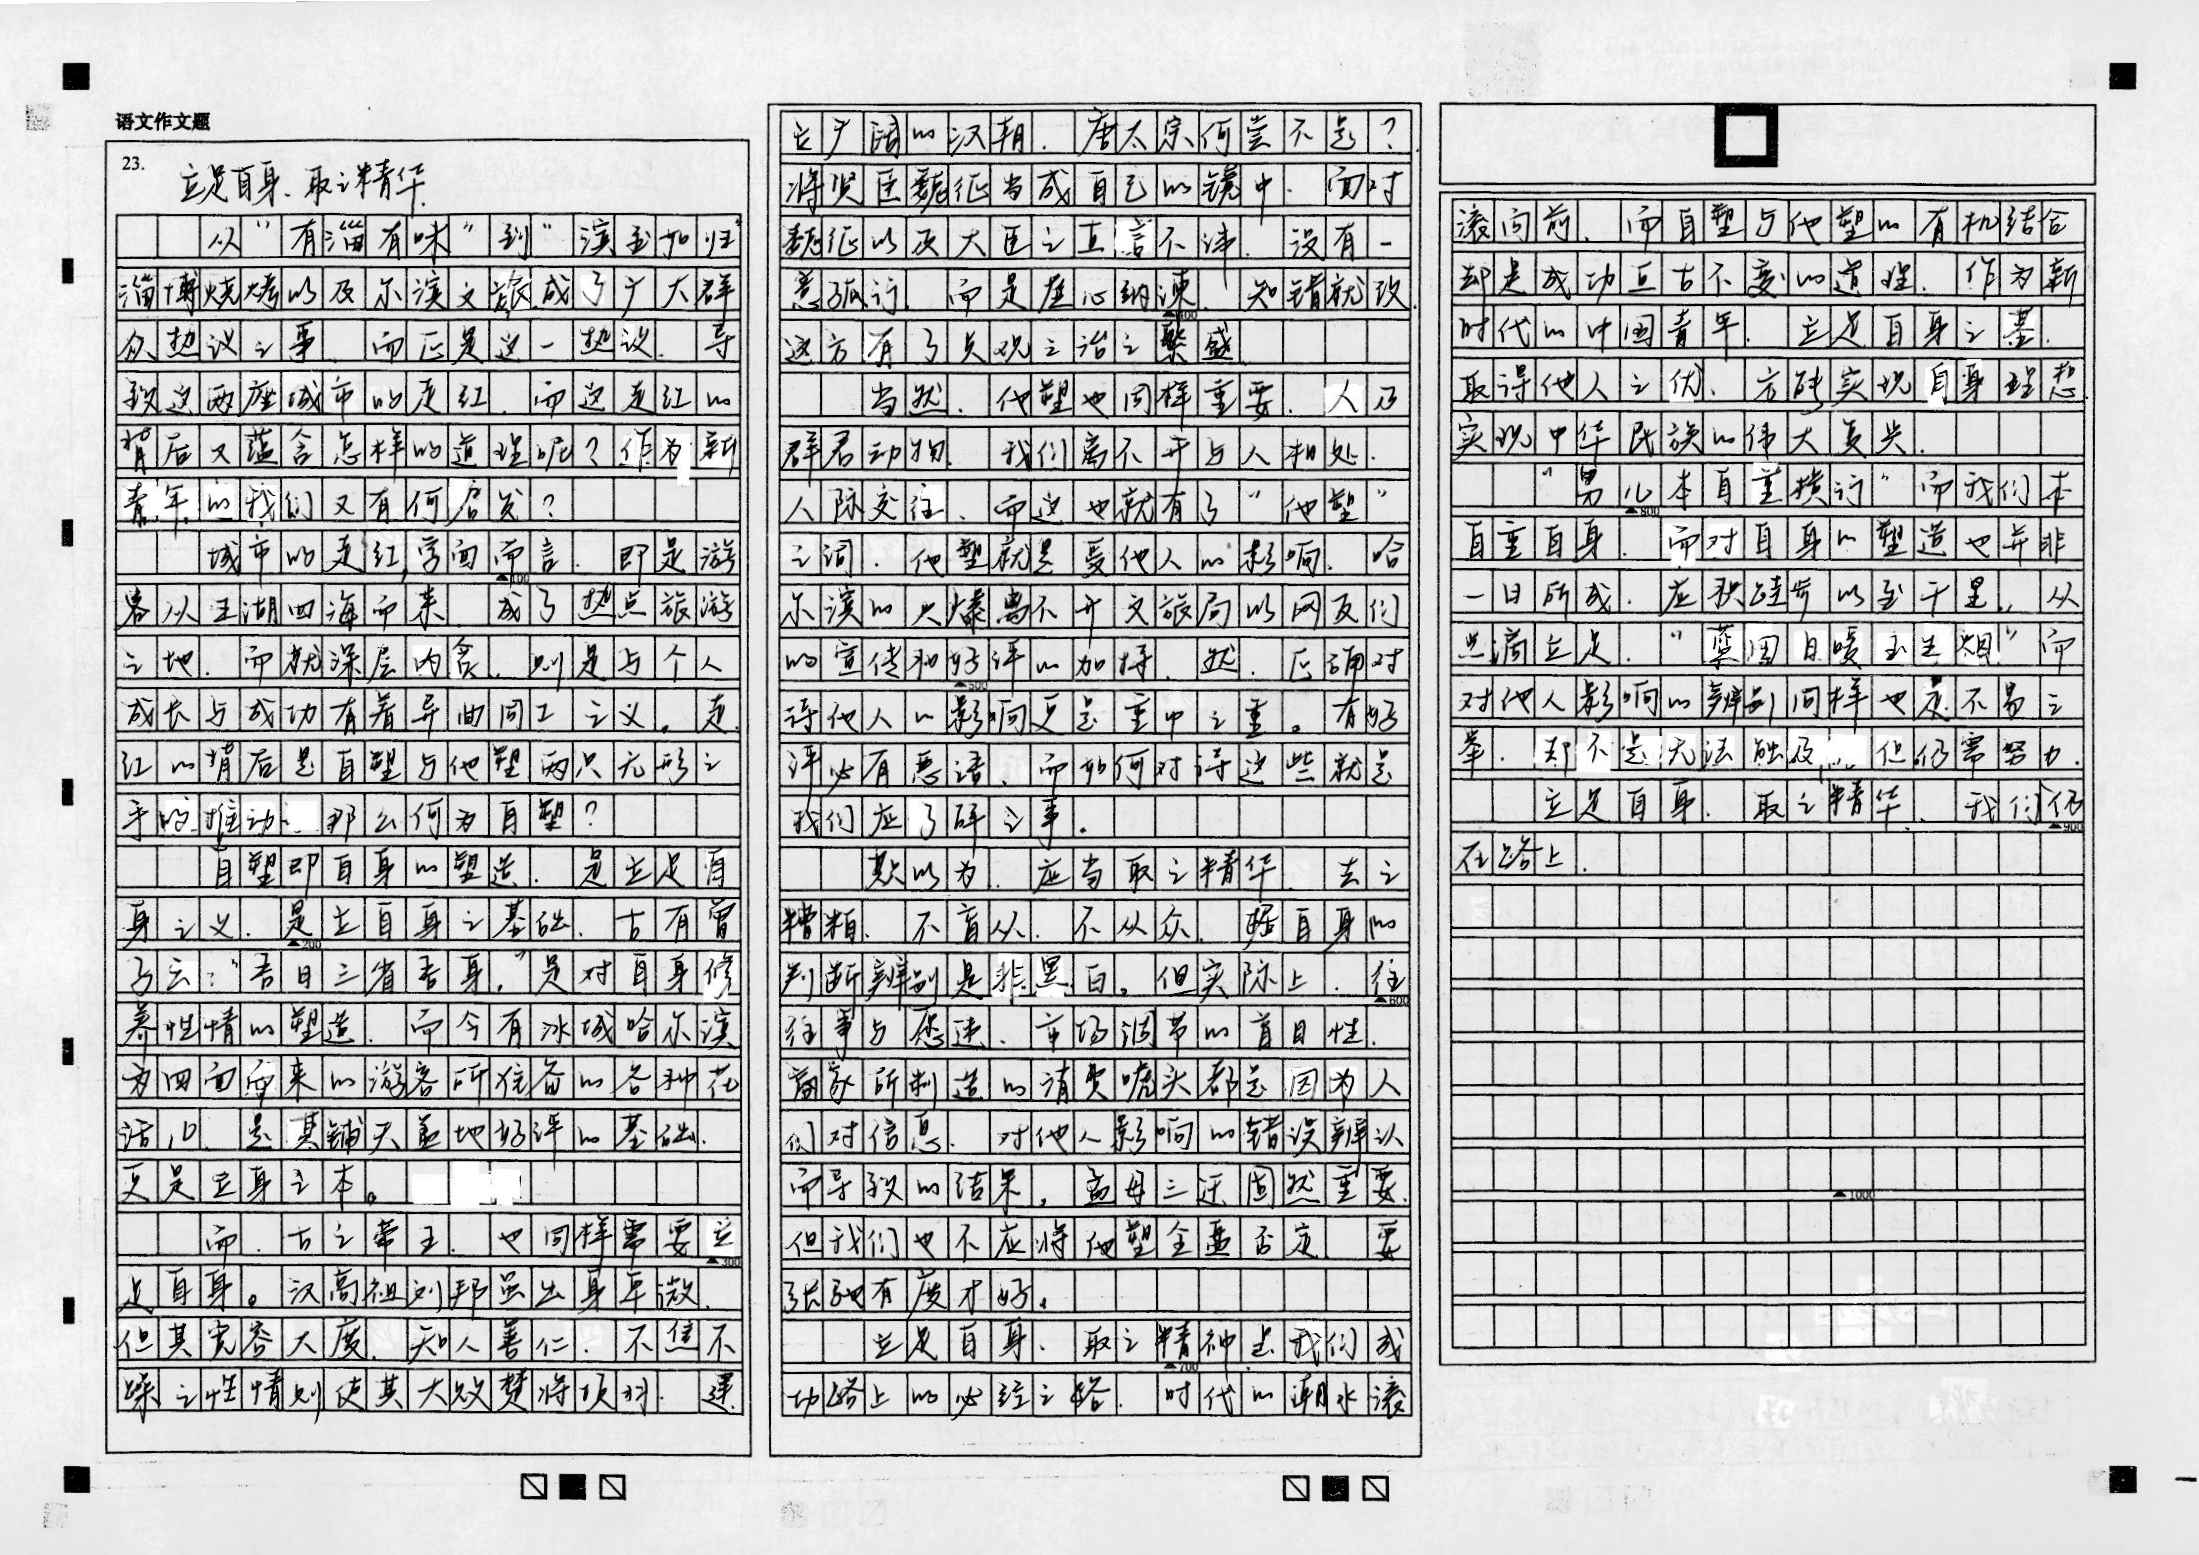 语文作文题
23.
立足自身、取之精华.
从“有淄有味”到“滨至如归”
淄博烧烤以及尔滨文旅成了广大群
众热议之事、而正是这一热议、导
致这两座城市的走红、而这走红的
背后又蕴含怎样的道理呢？作为新
青年的我们又有何启发？
城市的走红,字面而言、即是游
客从五湖四海而来、成了热点旅游
之地、而就深层内含、则是与个人
成长与成功有着异曲同工之义。走
红的背后是自塑与他塑两只无形之
手的推动 那么何为自塑？
自塑即自身的塑造、是立足自
身之义、是立自身之基础、古有曾
子云：“吾日三省吾身,”是对自身修
养性情的塑造、而今有冰城哈尔滨
为四面而来的游客所准备的各种花
活儿、是其铺天盖地好评的基础.
更是立身之本。
而、古之帝王、也同样需要立
足自身。汉高祖刘邦虽出身卑微.
但其宽容大度、知人善仁、不焦不
躁之性情则使其大败楚将项羽、建
立广阔的汉朝、唐太宗何尝不是？
将贤臣魏征当成自己的镜中、面对
魏征以及大臣之直言不讳、没有一
意孤行、而是虚心纳谏、知错就改.
这方有了贞观之治之繁盛
当然、他塑也同样重要、人乃
群居动物、我们离不开与人相处.
人际交往、而这也就有了“他塑”
之词、他塑就是受他人的影响、哈
尔滨的火爆离不开文旅局以网友们
的宣传和好评的加持、然、正确对
待他人的影响更是重中之重。有好
评必有恶语、而如何对待这些就是
我们应了解之事。
敷以为、应当取之精华、去之
糟粕、不盲从、不从众、据自身的
判断辨别是非黑白。但实际上、往
往事与愿违、市场调节的盲目性.
商家所制造的消费噱头都是因为人
们对信息、对他人影响的错误辨认
而导致的结果。孟母三迁固然重要.
但我们也不应将他塑全盖否定、要
张弛有度才好。
立足自身、取之精神是我们成
功路上的必经之路、时代的潮水滚
滚向前、而自塑与他塑的有机结合
却是成功亘古不变的道理、作为新
时代的中国青年、立足自身之基.
取得他人之优、方能实现自身理想.
实现中华民族的伟大复兴.
“男儿本自重横行”而我们本
自重自身、而对自身的塑造也并非
一日所成、应积跬步以至千里.、从
点滴立足、“蓝田日暖玉生烟”而
对他人影响的辨别同样也是不易之
举、却不是无法触及... 但仍需努力.
立足自身、取之精华、我们仍
在路上.